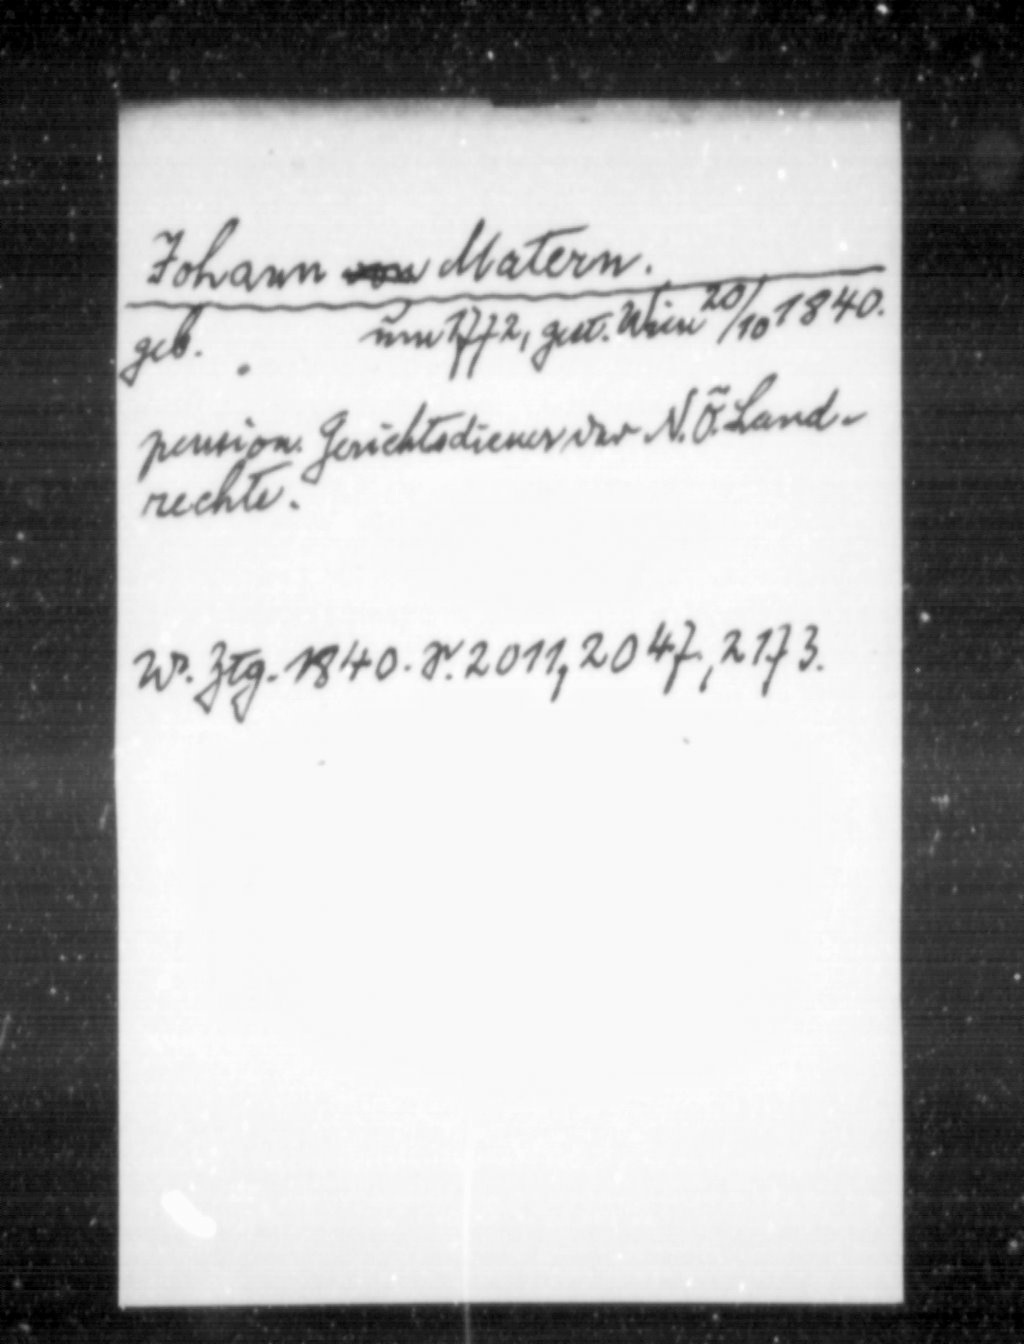 Johann von Matern.
geb. um 1772, gest. Wien 20/10 1840.
pension. Gerichtsdiener der N.Ö. Land-
rechte.
W. Ztg. 1840. S. 2011, 2047, 2173.